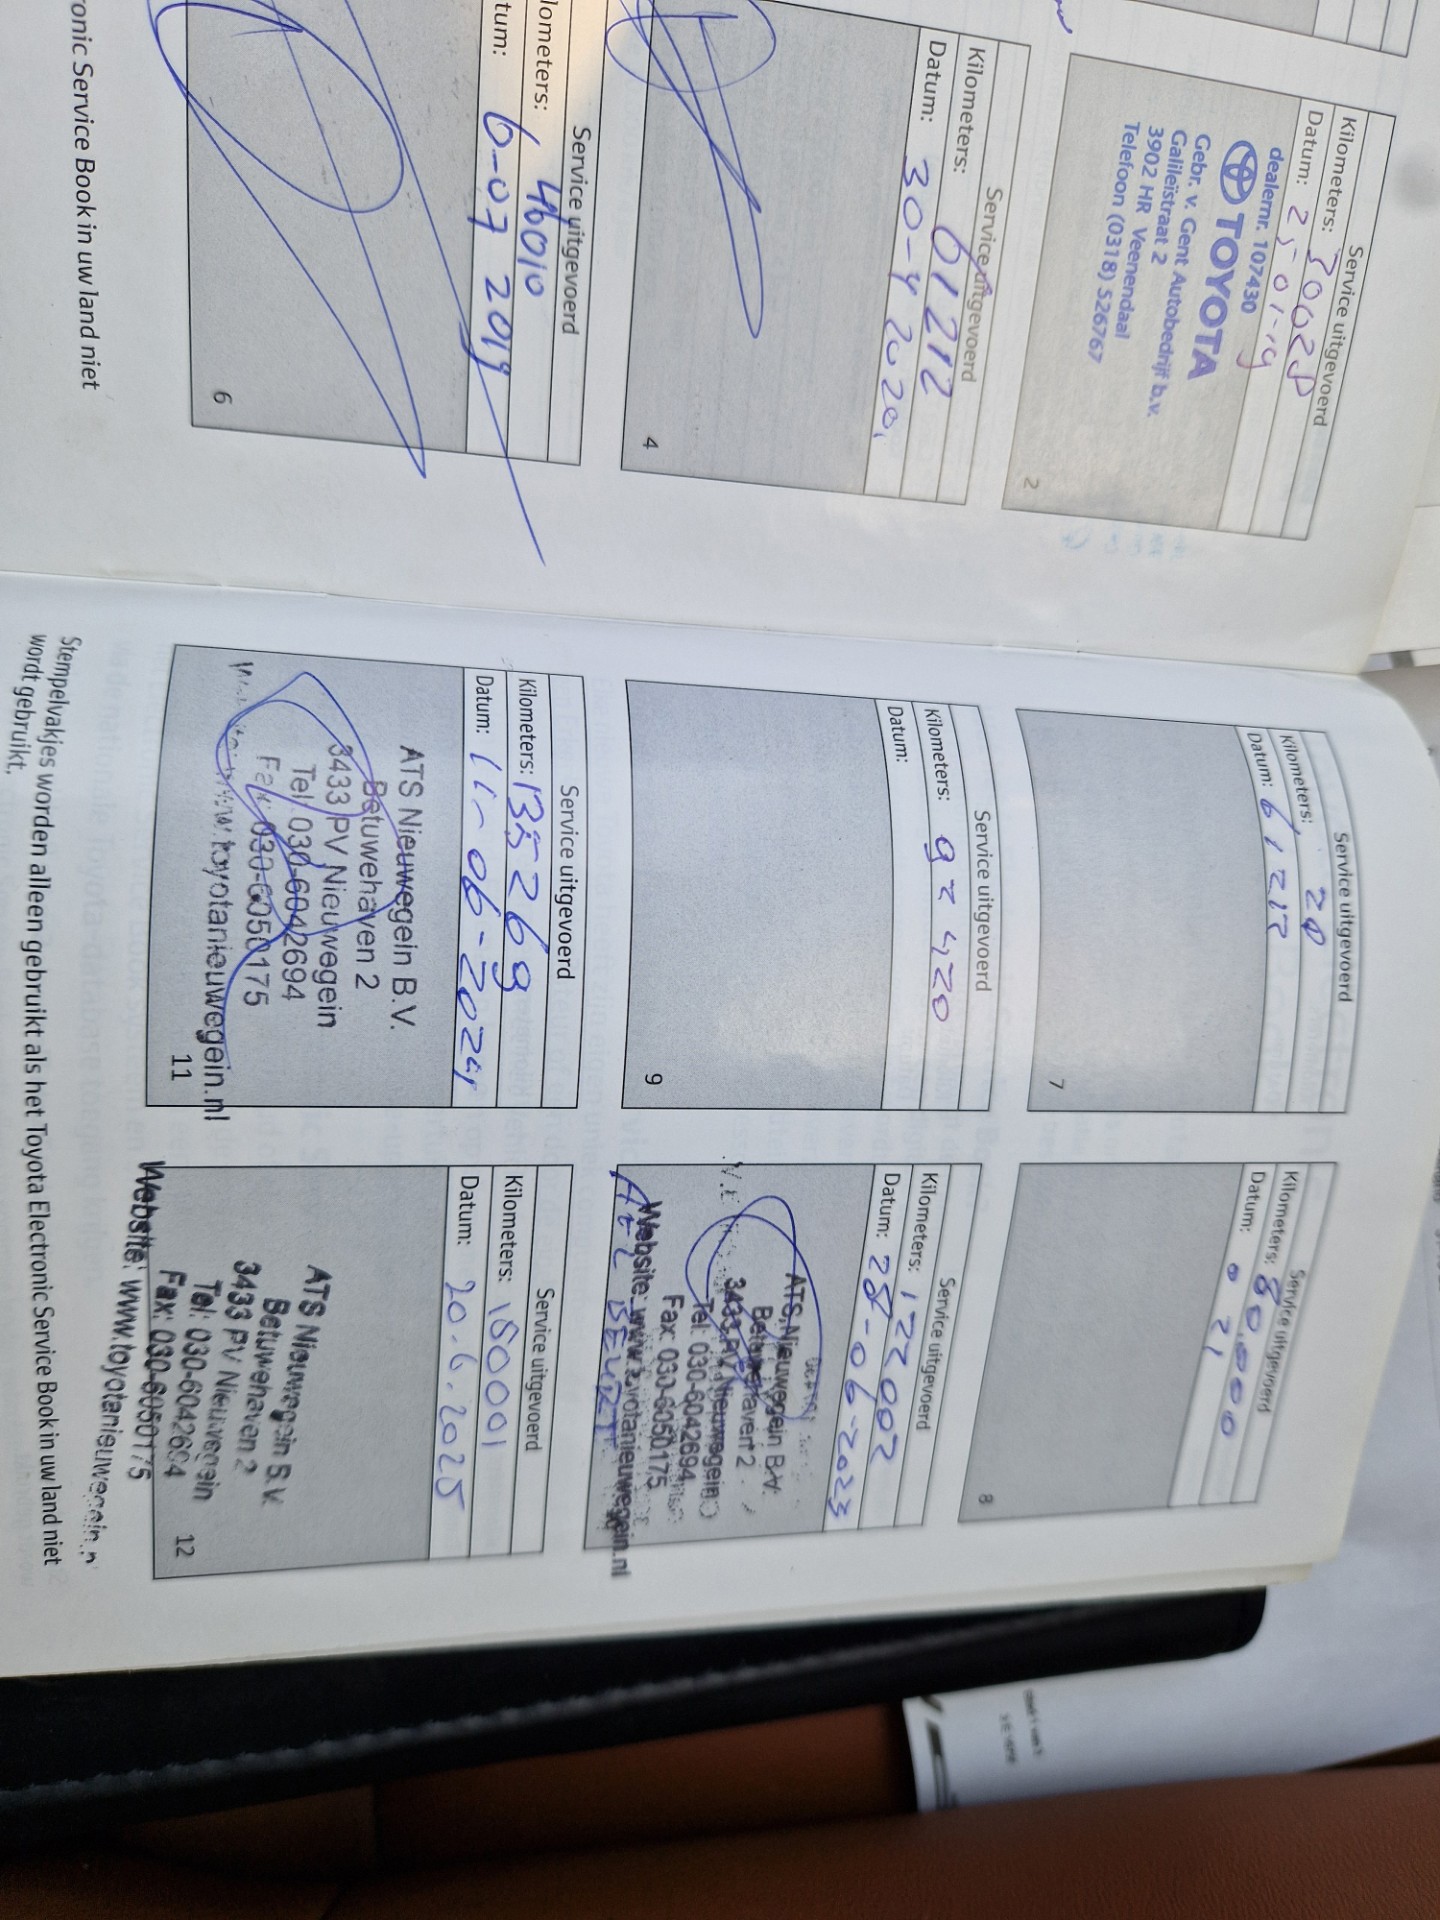 Service uitgevoerd
Kilometers: 30028
Datum: 25-01-19
dealernr. 107430
TOYOTA
Gebr. v. Gent Autobedrijf b.v.
Galileïstraat 2
3902 HR Veenendaal
Telefoon (0318) 526767
2
Service uitgevoerd
Kilometers: 61212
Datum: 30-4 2020
4
Service uitgevoerd
lometers: 46010
tum: 6-07 2019
6
ronic Service Book in uw land niet
Service uitgevoerd
Kilometers: 20
Datum: 6/1212
7
Service uitgevoerd
Kilometers: 80.000
Datum: 21
8
Service uitgevoerd
Kilometers: 92420
Datum:
9
Service uitgevoerd
Kilometers: 122002
Datum: 28-06-2023
ATS Nieuwegein B.V.
Betuwehaven 2
3433 PV Nieuwegein
Tel: 030-6042694
Fax: 030-6050175
Website: www.toyotanieuwegein.nl
BEURT
Service uitgevoerd
Kilometers: 135269
Datum: 11-06-2024
ATS Nieuwegein B.V.
Betuwehaven 2
3433 PV Nieuwegein
Tel: 030-6042694
Fax: 030-6050175
www.toyotanieuwegein.nl
11
Service uitgevoerd
Kilometers: 150001
Datum: 20.6.2025
ATS Nieuwegein B.V.
Betuwehaven 2
3433 PV Nieuwegein
Tel: 030-6042694
Fax: 030-6050175
Website: www.toyotanieuwegein.n
12
Stempelvakjes worden alleen gebruikt als het Toyota Electronic Service Book in uw land niet
wordt gebruikt.